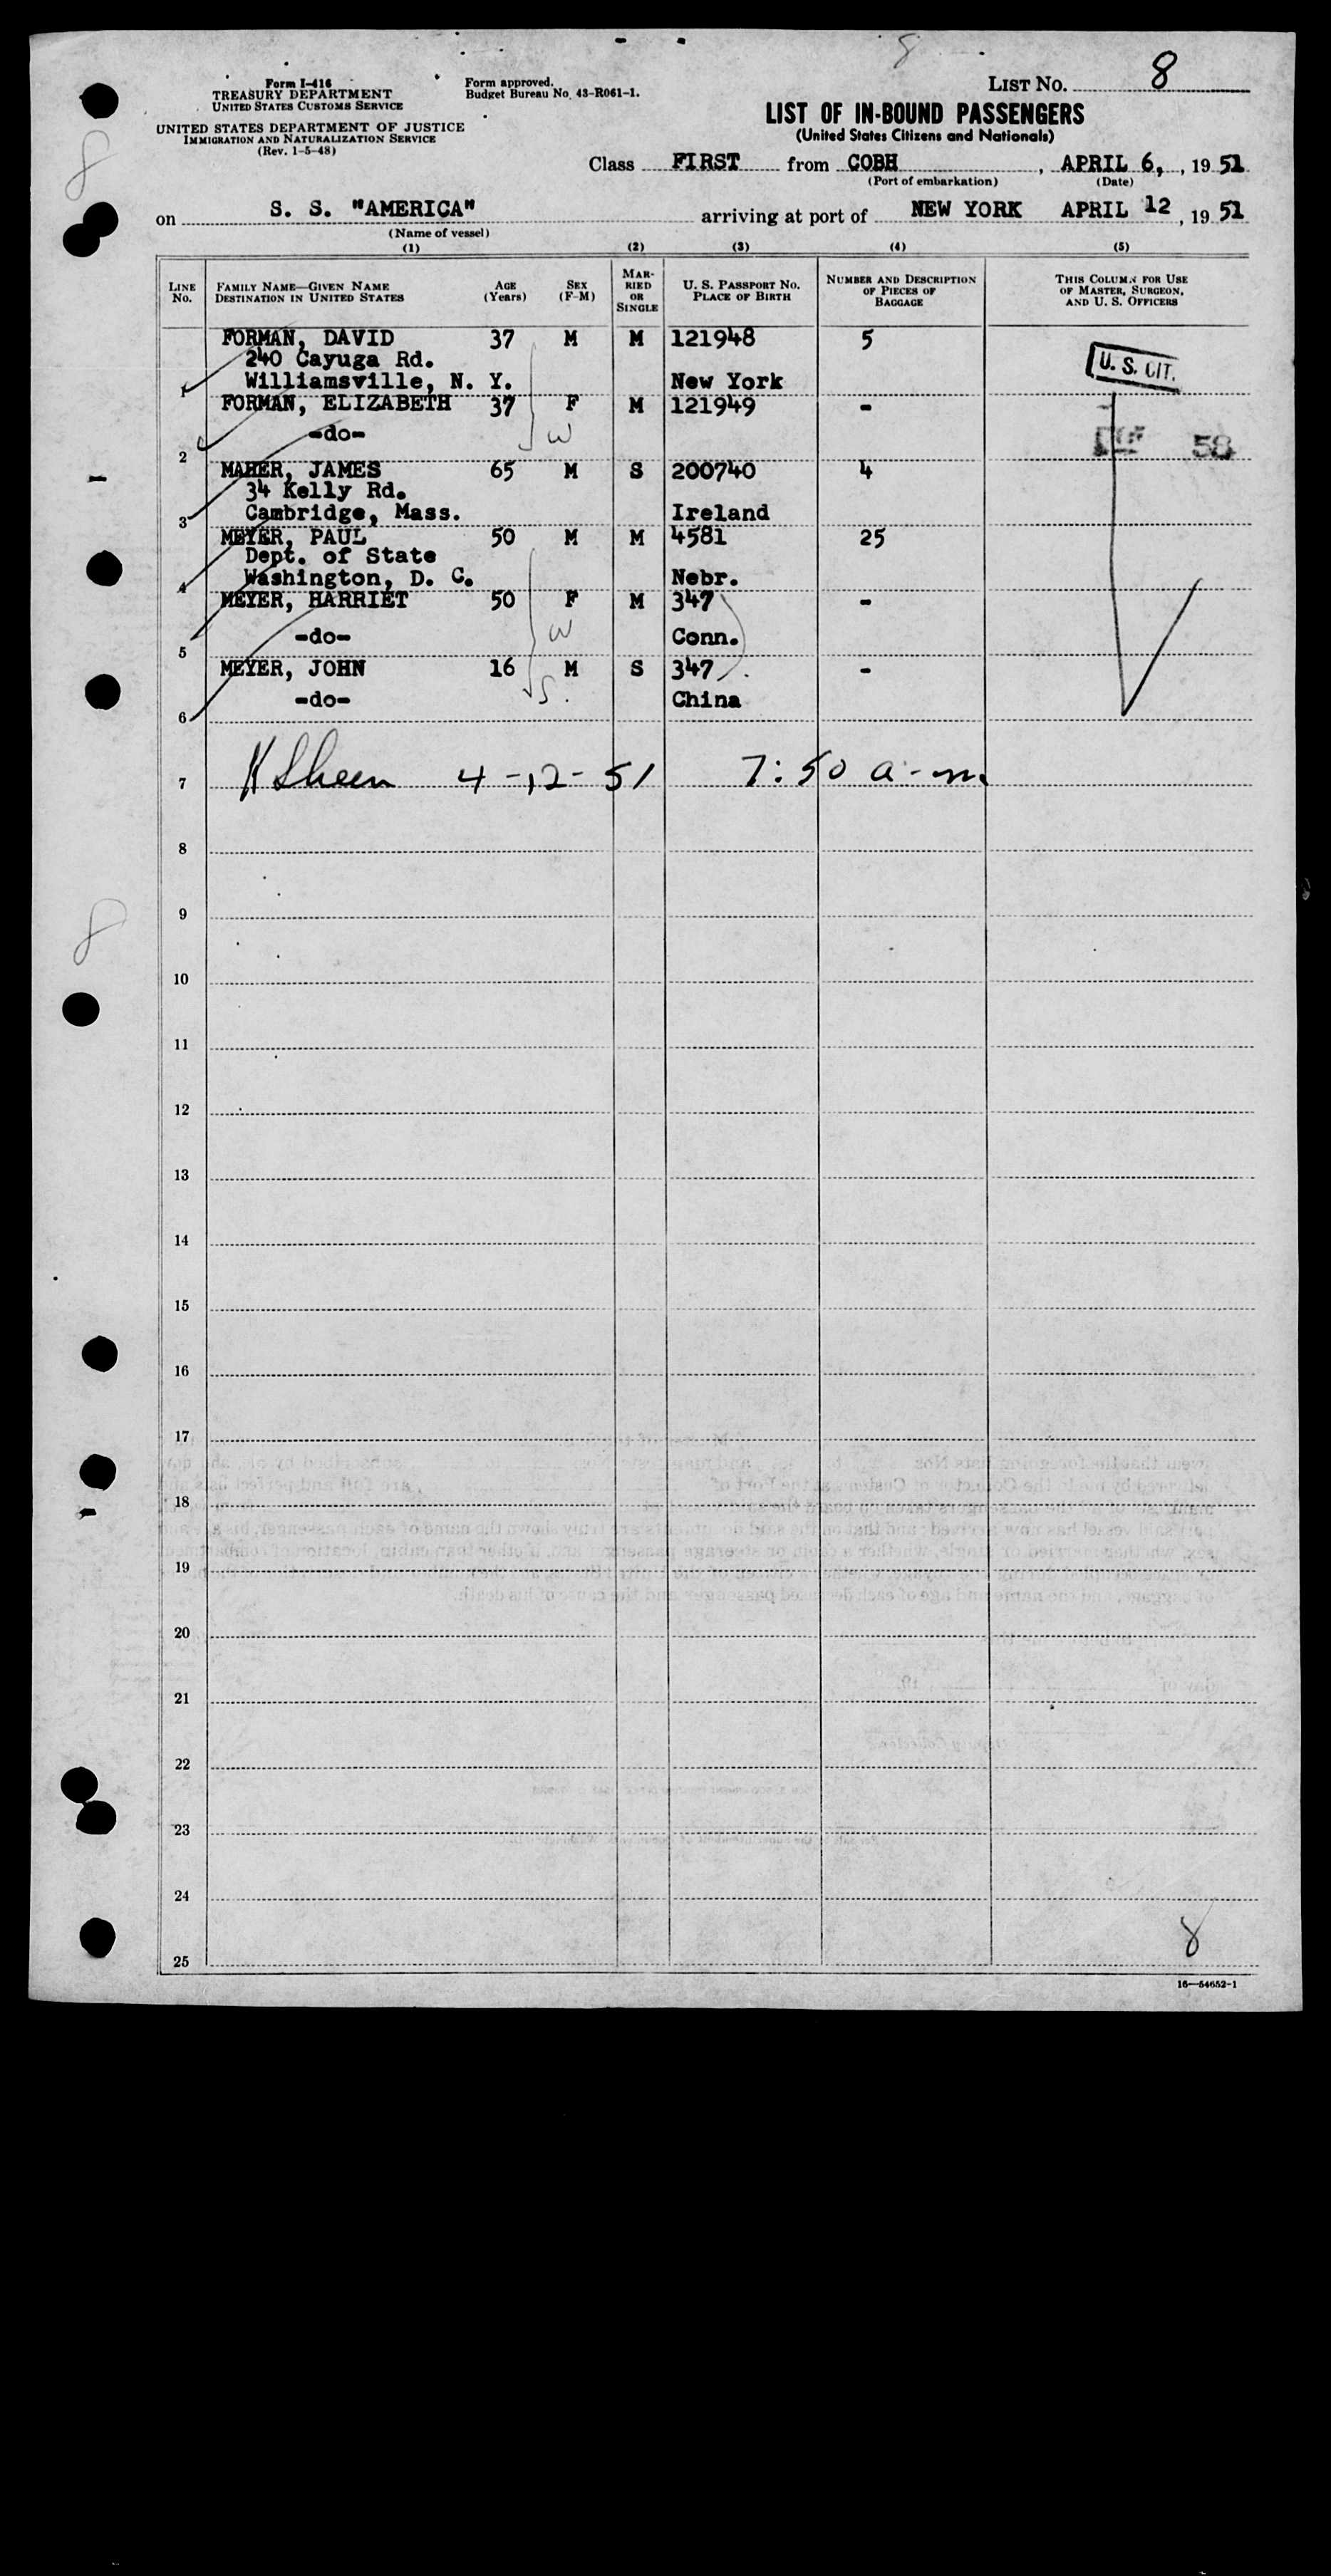 8
Form I-416
TREASURY DEPARTMENT
UNITED STATES CUSTOMS SERVICE
UNITED STATES DEPARTMENT OF JUSTICE
IMMIGRATION AND NATURALIZATION SERVICE
(Rev. 1-5-48)
Form approved.
Budget Bureau No. 43-R061-1.
LIST No. 8
LIST OF IN-BOUND PASSENGERS
(United States Citizens and Nationals)
Class FIRST from COBH, APRIL 6, , 19 51
(Port of embarkation) (Date)
on S. S. "AMERICA" arriving at port of NEW YORK APRIL 12, 19 51
(Name of vessel)
(1) (2) (3) (4) (5)
LINE No. FAMILY NAME—GIVEN NAME DESTINATION IN UNITED STATES AGE (Years) SEX (F-M) MARRIED OR SINGLE U. S. PASSPORT No. PLACE OF BIRTH NUMBER AND DESCRIPTION OF PIECES OF BAGGAGE THIS COLUMN FOR USE OF MASTER, SURGEON, AND U. S. OFFICERS
FORMAN, DAVID 37 M M 121948 5
240 Cayuga Rd.
U. S. CIT.
1 Williamsville, N. Y. New York
FORMAN, ELIZABETH 37 F M 121949 -
-do- W
58
2
MAHER, JAMES 65 M S 200740 4
34 Kelly Rd.
3 Cambridge, Mass. Ireland
MEYER, PAUL 50 M M 4581 25
Dept. of State
4 Washington, D. C. Nebr.
MEYER, HARRIET 50 F M 347 -
-do- W Conn.
5
MEYER, JOHN 16 M S 347 -
-do- S. China
6
7 K Sheen 4-12-51 7:50 a-m.
8
8
9
10
11
12
13
14
15
16
17
18
19
20
21
22
23
24
8
25
16—54652-1